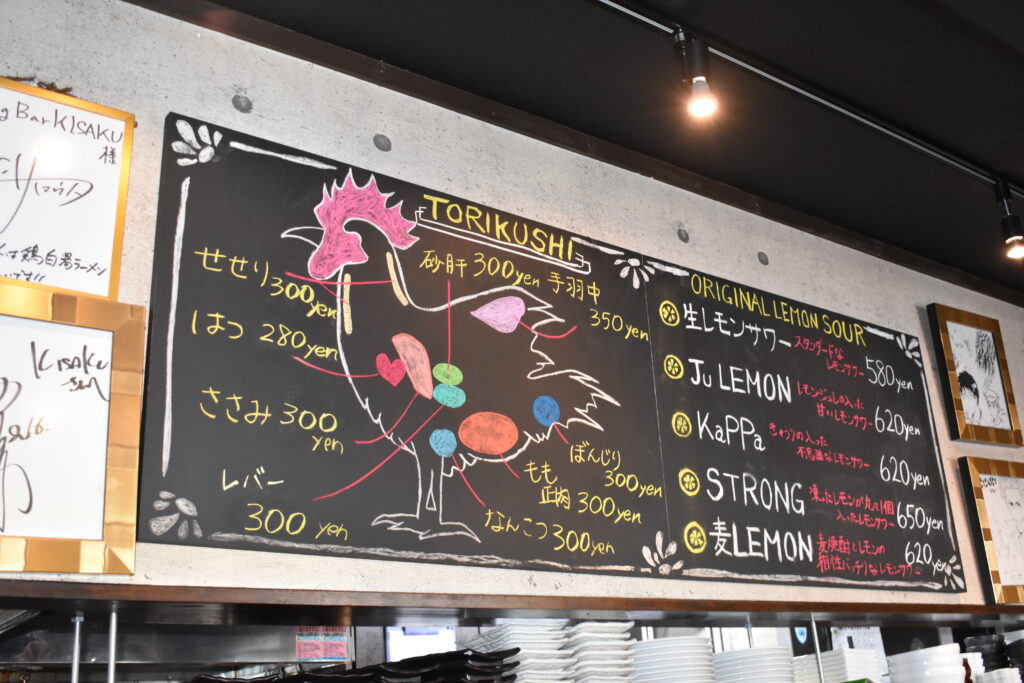 Bar KISAKU
様
は鶏白湯ラーメン
KISAKU
TORIKUSHI
せせり
300yen
はつ 280yen
ささみ 300
yen
レバー
300 yen
砂肝 300yen
手羽中
350yen
ぼんじり
300yen
もも
正肉 300yen
なんこつ 300yen
ORIGINAL LEMON SOUR
生レモンサワー
スタンダードな
レモンサワー
580yen
Ju LEMON
レモンジュレの入った
甘いレモンサワー
620yen
KaPPa
きゅうりの入った
不思議なレモンサワー
620yen
STRONG
凍ったレモンが丸々1個
入ったレモンサワー
650yen
麦LEMON
麦焼酎とレモンの
相性バッチリなレモンサワー
620yen